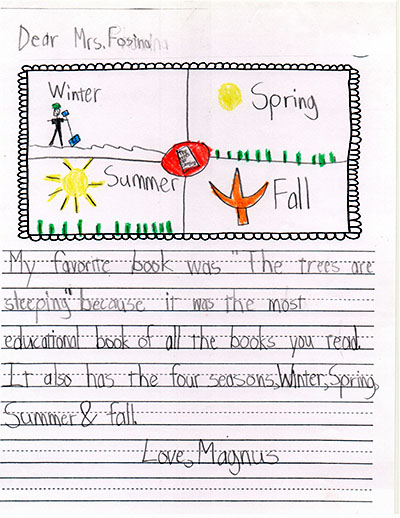 Dear Mrs. Fosina
Winter
Spring
Summer
Fall
My favorite book was "The trees are
sleeping" because it was the most
educational book of all the books you read.
It also has the four seasons, Winter, Spring,
Summer & fall.
Love, Magnus